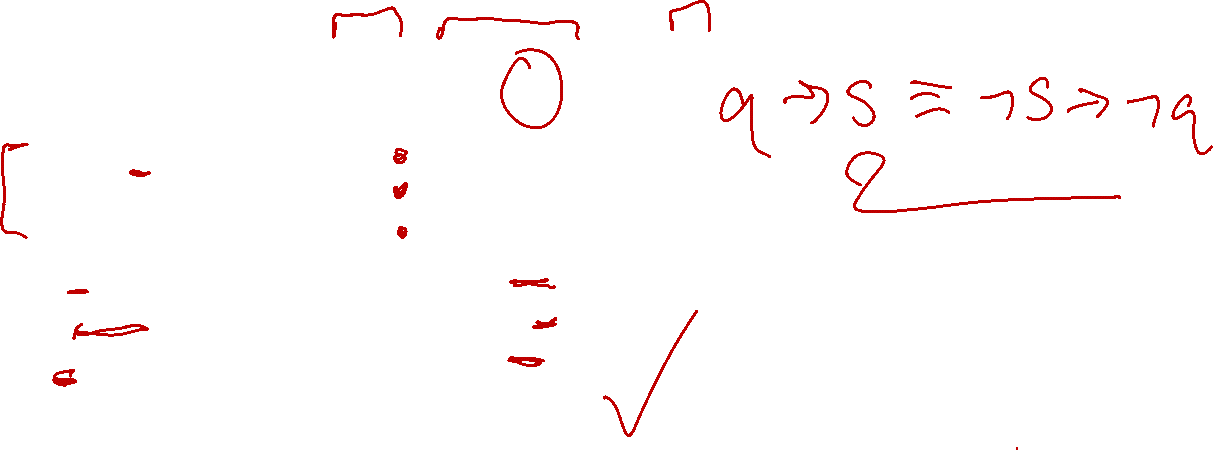 q → s ≡ ¬s → ¬q